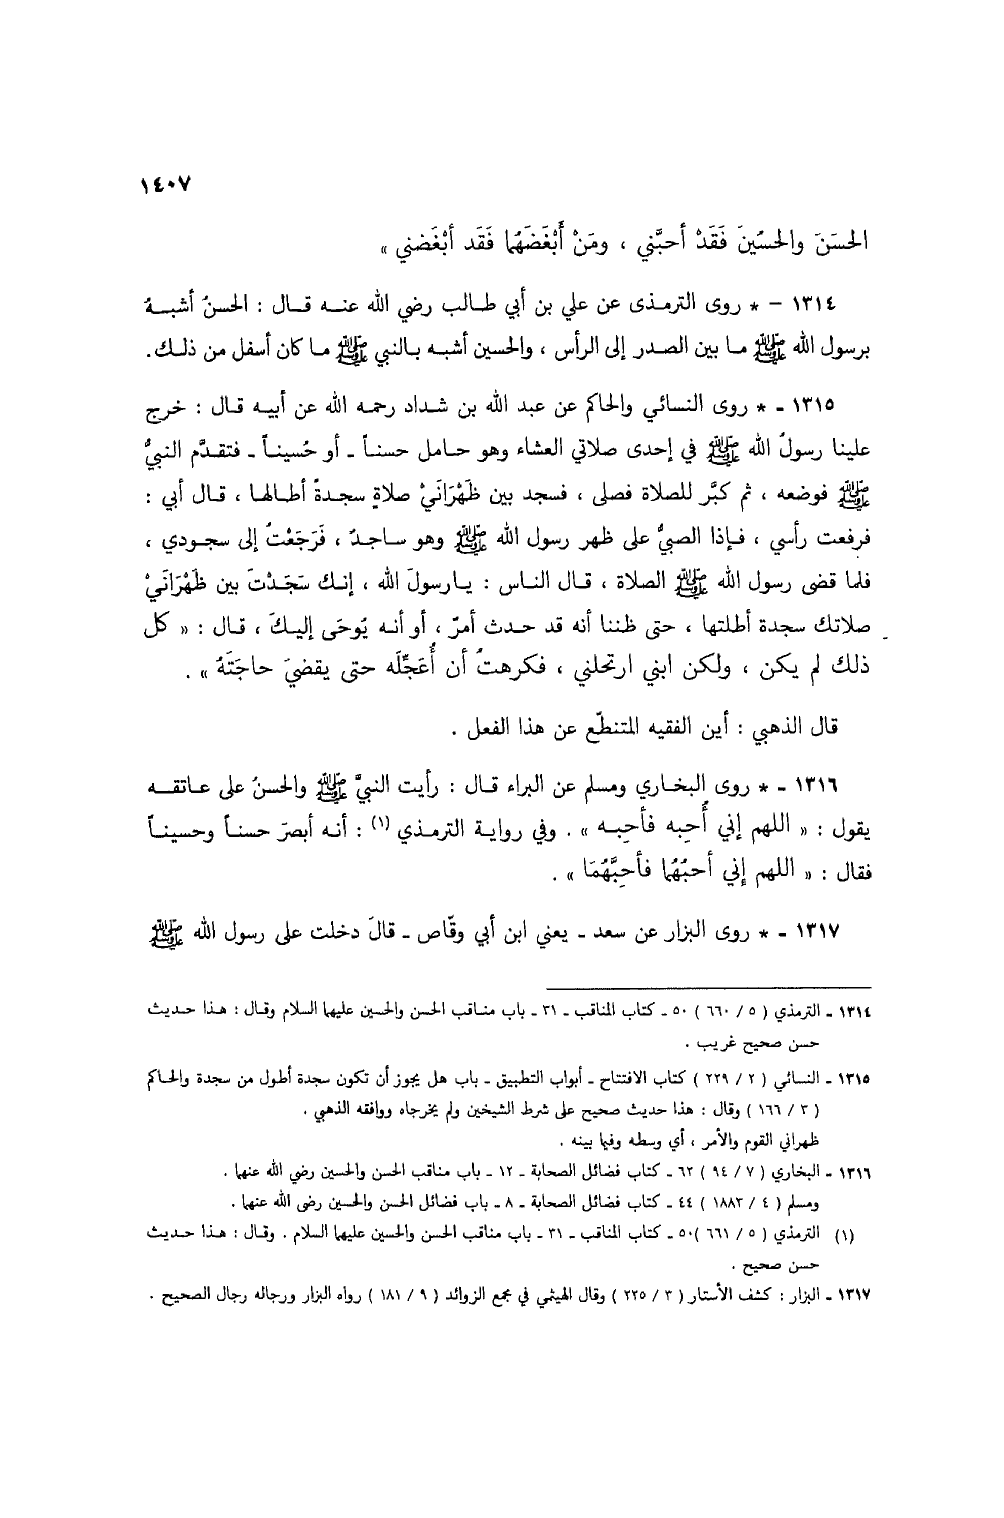 ١٤٠٧
الحسَنَ والحسُينَ فَقَدْ أحبَّني ، ومَنْ أَبْغَضَهُما فَقَد أبْغَضني »
١٣١٤ - * روى الترمذى عن علي بن أبي طـالب رضي الله عنـه قـال : الحسنُ أشبـهُ
برسول الله ﷺ مـا بين الصدر إلى الرأس ، والحسين أشبه بـالنبي ﷺ مـا كان أسفل من ذلـك.
١٣١٥ - * روى النسائي والحاكم عن عبد الله بن شداد رحمه الله عن أبيـه قـال : خرج
علينا رسولُ الله ﷺ في إحدى صلاتي العشاء وهو حـامل حسنـاً - أو حُسينـاً - فتقـدَّم النبيُّ
ﷺ فوضعه ، ثم كبَّر للصلاة فصلى ، فسجد بين ظَهْرَانَيْ صلاةٍ سجـدةً أطـالها ، قـال أبي :
فرفعت رأسي ، فـإذا الصبيُّ على ظهر رسول الله ﷺ وهو سـاجـدٌ ، فَرَجَعْتُ إلى سجـودي ،
فلما قضى رسول الله ﷺ الصلاة ، قـال النـاس : يـارسولَ الله ، إنـك سَجَدْتَ بين ظَهْرَانَيْ
صلاتك سجدة أطلتها ، حتى ظننا أنه قد حـدث أمرٌ ، أو أنـه يُوحَى إليـكَ ، قـال : « كل
ذلك لم يكن ، ولكن ابني ارتحلني ، فكرهتُ أن أُعَجِّلَه حتى يقضيَ حاجَتَهُ » .
قال الذهبي : أين الفقيه المتنطّع عن هذا الفعل .
١٣١٦ - * روى البخـاري ومسلم عن البراء قـال : رأيت النبيَّ ﷺ والحسنُ على عـاتقـه
يقول : « اللهم إني أُحِبه فأحِبـه » . وفي روايـة الترمـذي (١) : أنـه أبصرَ حسنـاً وحسينـاً
فقال : « اللهم إني أحبُهُما فأحِبَّهُمَا » .
١٣١٧ - * روى البزار عن سعد - يعني ابن أبي وقّاص - قالَ دخلت على رسول الله ﷺ
١٣١٤ - الترمذي ( ٥ / ٦٦٠ ) ٥٠ - كتاب المناقب - ٣١ - باب منـاقب الحسن والحسين عليهما السلام وقـال : هـذا حـديث
حسن صحيح غريب .
١٣١٥ - النسائي ( ٢ / ٢٢٩ ) كتاب الافتتاح - أبواب التطبيق - باب هل يجوز أن تكون سجدة أطول من سجدة والحاكم
( ٣ / ١٦٦ ) وقال : هذا حديث صحيح على شرط الشيخين ولم يخرجاه ووافقه الذهبي .
ظهراني القوم والأمر ، أي وسطه وفيما بينه .
١٣١٦ - البخاري ( ٧ / ٩٤ ) ٦٢ - كتاب فضائل الصحابة - ١٢ - باب مناقب الحسن والحسين رضي الله عنهما .
ومسلم ( ٤ / ١٨٨٣ ) ٤٤ - كتاب فضائل الصحابة - ٨ - باب فضائل الحسن والحسين رضى الله عنهما .
(١) الترمذي ( ٥ / ٦٦١ )٥٠ - كتاب المناقب - ٣١ - باب مناقب الحسن والحسين عليهما السلام . وقـال : هـذا حـديث
حسن صحيح .
١٣١٧ - البزار : كشف الأستار ( ٣ / ٢٢٥ ) وقال الهيثمي في مجمع الزوائد ( ٩ / ١٨١ ) رواه البزار ورجاله رجال الصحيح .